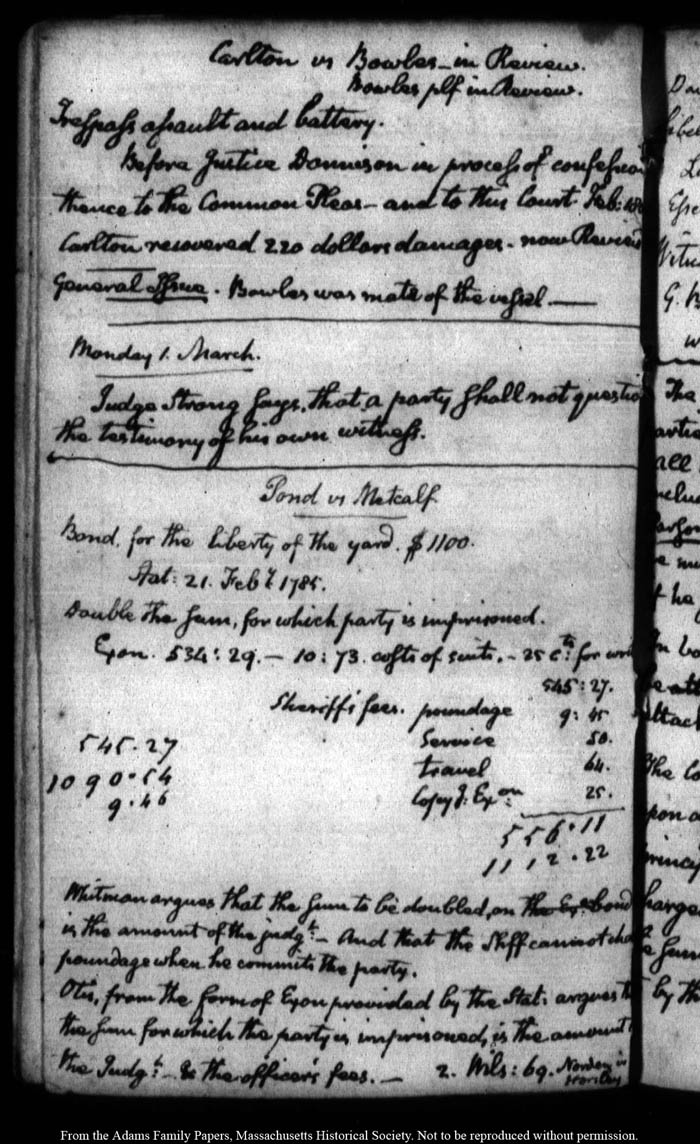 Carlton vs Bowles - in Review.
Bowles plf in Review.
Trespass assault and battery.
Before Justice Dennison in process of
thence to the Common Pleas - and to this Court. Feb:
Carlton recovered 220 dollars damages - now
General Issue. Bowles was mate of the vessel —
Monday 1. March.
Judge Strong says, that a party shall not
the testimony of his own witness.
Pond vs Metcalf
Bond. for the liberty of the yard. $1100.
Stat: 21. Feby 1785.
Double the sum, for which party is imprisoned.
Exon. 534:29. — 10:73. costs of suits. - 25 cts: for
545:27.
Sheriff's fees. poundage 9:45
Service 50.
545.27 travel 64.
1090.54 Copy of Exon 25.
9.46
556.11
1112.22
Whitman argues that the sum to be doubled, on the bond
is the amount of the judgt: - And that the Shff cannot
poundage when he commits the party.
Otis, from the form of Exon provided by the Stat: argues
the sum for which the party is imprisoned, is the amount
the Judgt: - & the officer's fees. — 2. Wils: 69. Norden vs
Horsley
From the Adams Family Papers, Massachusetts Historical Society. Not to be reproduced without permission.